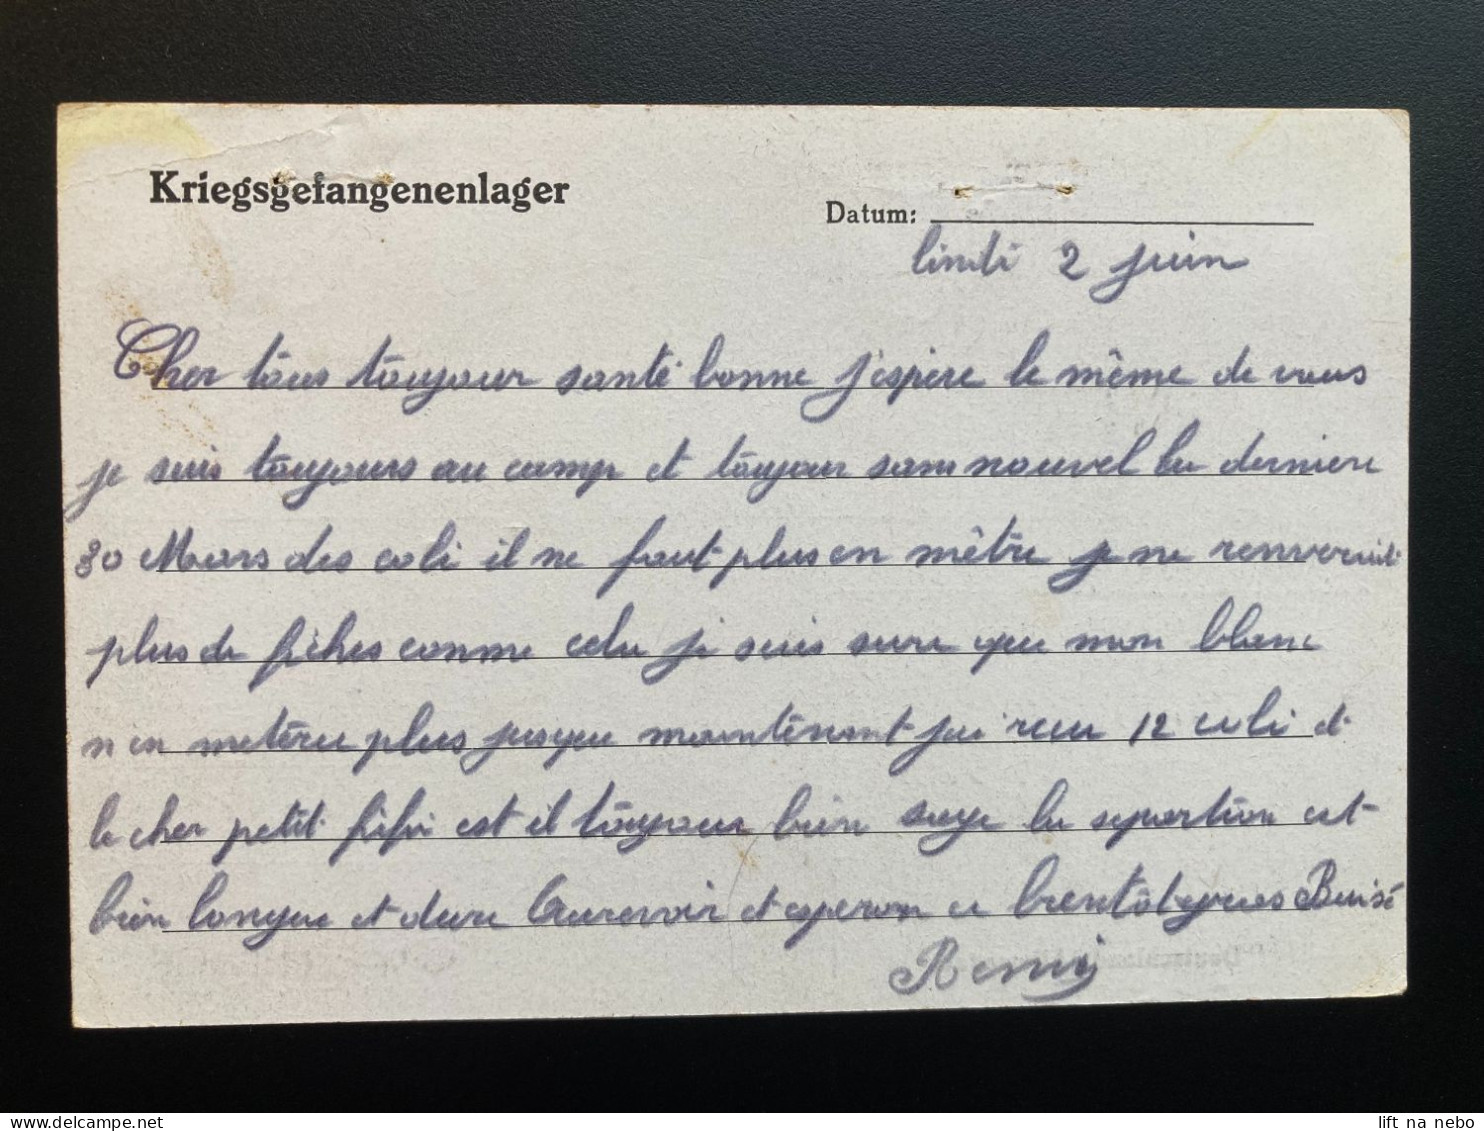 Kriegsgefangenenlager
Datum:
lindi 2 juin
Cher tous toujour santé bonne j'espère le même de vous
je suis toujours au camp et toujour sans nouvel la derniere
30 Mars des coli il ne faut plus en mêtre je ne renverait
plus de fiches comme cela je suis sure que mon blanc
n en meteru plus jusque maintenant jai recu 12 coli et
le cher petit fifi est il toujour bien sage la separtion est
bien longue et dure Aurevoir et esperon a bientôt gros Baisé
Remy
lift na nebo